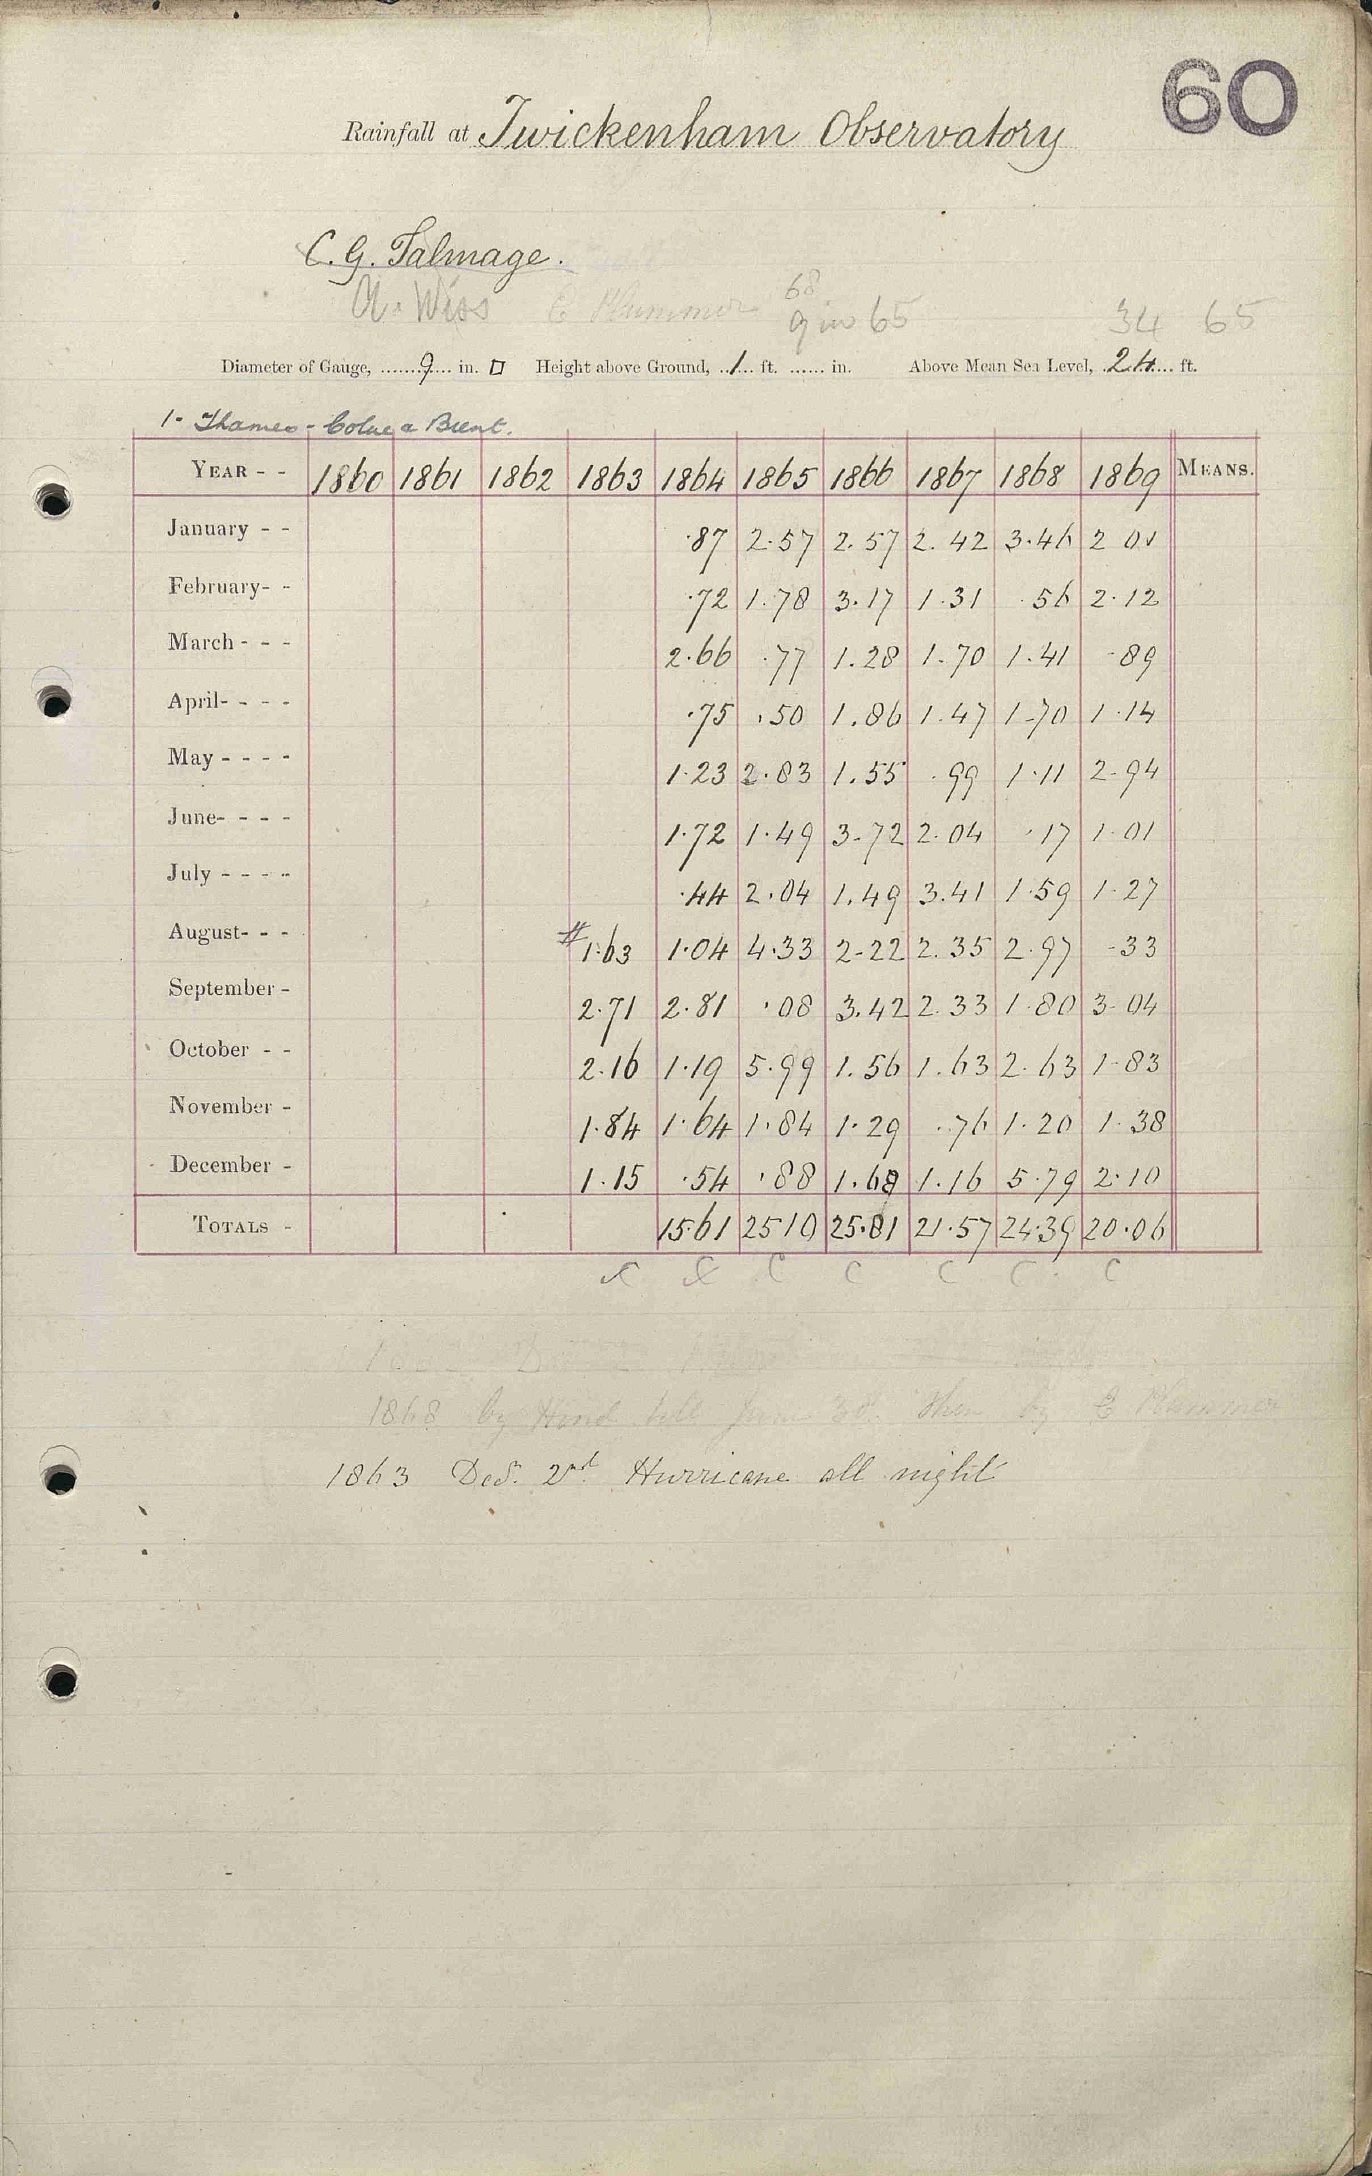 60
Rainfall at Twickenham Observatory
C. G. Talmage.
68
A. Wiss C Plummer 9 in 65 34 65
Diameter of Gauge, 9 in. □ Height above Ground, 1 ft. in. Above Mean Sea Level, 24 ft.
1- Thames - Colne & Brent.
YEAR - - 1860 1861 1862 1863 1864 1865 1866 1867 1868 1869 MEANS.
January - - ·87 2·57 2·57 2·42 3·46 2 01
February- - ·72 1·78 3·17 1·31 ·56 2·12
March - - - 2·66 ·77 1·28 1·70 1·41 ·89
April- - - - ·75 ·50 1·86 1·47 1·70 1·14
May - - - - 1·23 2·83 1·55 ·99 1·11 2·94
June- - - - 1·72 1·49 3·72 2·04 ·17 1·01
July - - - - ·44 2·04 1·49 3·41 1·59 1·27
August- - - # 1·63 1·04 4·33 2·22 2·35 2·97 ·33
September - 2·71 2·81 ·08 3·42 2·33 1·80 3·04
October - - 2·16 1·19 5·99 1·56 1·63 2·63 1·83
November - 1·84 1·64 1·84 1·29 ·76 1·20 1·38
December - 1·15 ·54 ·88 1·68 1·16 5·79 2·10
TOTALS - 15·61 25 10 25·81 21·57 24·39 20·06
C C C C C
1868 by Hind till June 30. Then by C Plummer
1863 Dec. 2nd. Hurricane all night